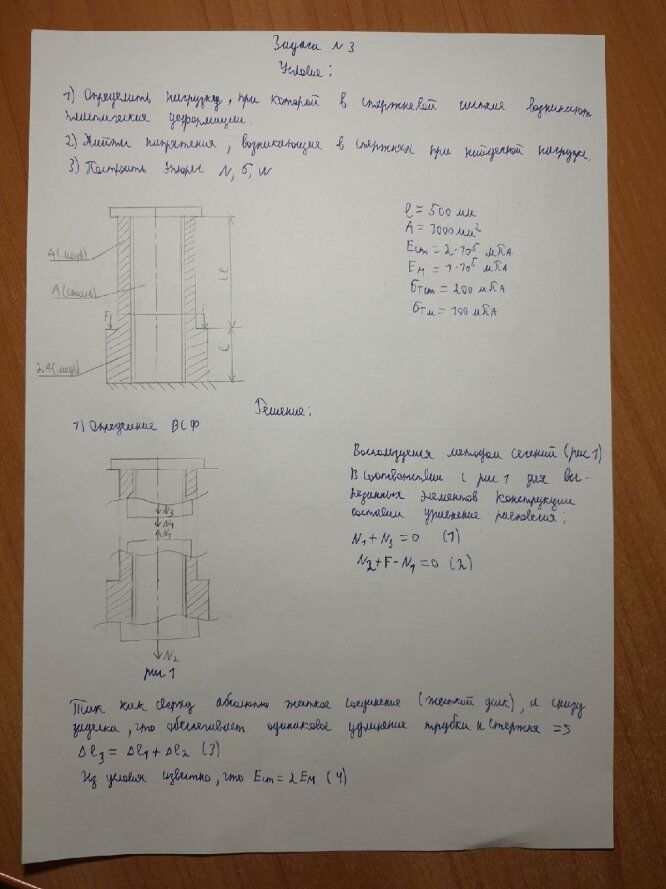 Задача N 3
Условие:
1) Определить нагрузку, при которой в стержневой системе возникают
пластические деформации.
2) Найти напряжения, возникающие в стержнях при найденной нагрузке.
3) Построить Эпюры N, σ, W
l = 500 мм
A = 1000 мм²
Eст = 2·10⁵ мПА
Eм = 1·10⁵ мПА
σтст = 200 мПА
σтм = 100 мПА
A(медь)
A(сталь)
2A(медь)
2l
l
F
F
Решение:
1) Определение ВСФ
Воспользуемся методом сечений (рис 1)
В соответствии с рис 1 для вы-
резанных элементов конструкции
составим уравнение равновесия:
N₁ + N₃ = 0 (1)
N₂ + F - N₁ = 0 (2)
N₃
N₁
N₁
N₂
рис 1
Так как сверху абсолютно жесткое соединение (жесткий диск), а снизу
заделка, что обеспечивает одинаковое удлинение трубки и стержня =>
Δl₃ = Δl₁ + Δl₂ (3)
Из условия известно, что Eст = 2Eм (4)